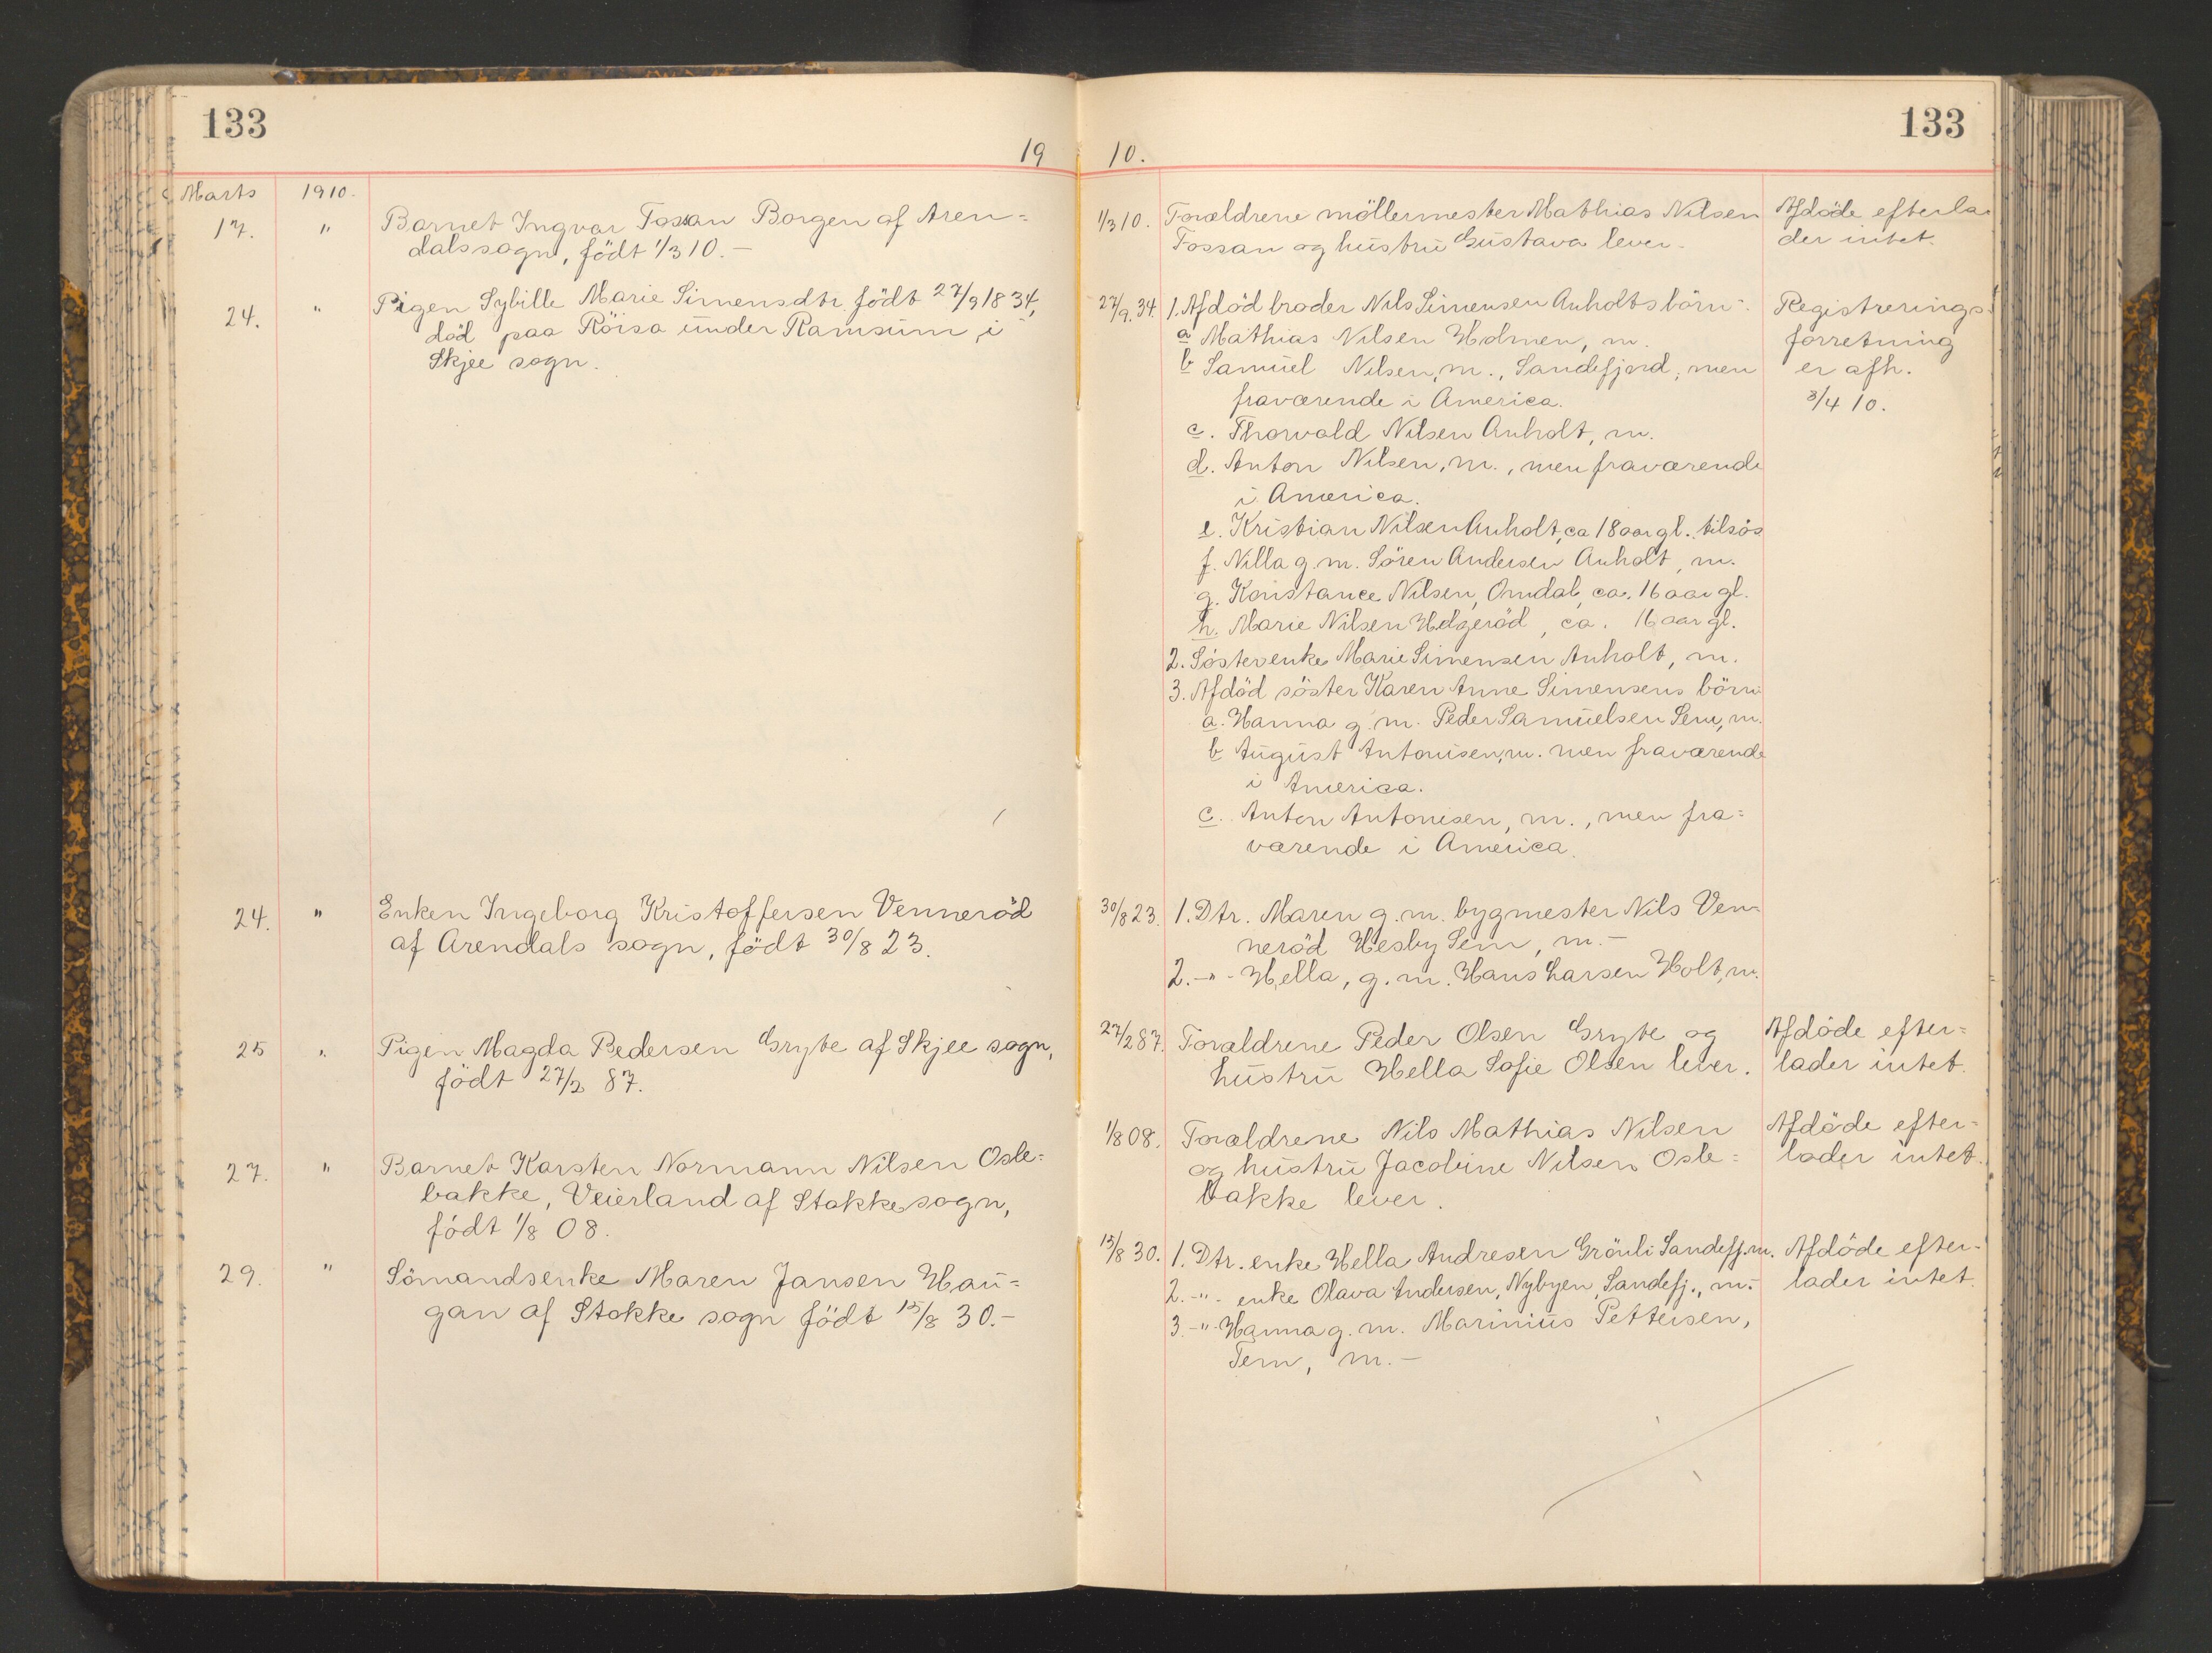 133
19
Marts 1910.
17. " Barnet Ingvar Fossan Borgen af Aren=
dals sogn, födt 1/3 10.-
24. " Pigen Sybille Marie Simensdtr. födt 27/9 1834,
död paa Röisa under Ramsum i
Skjee sogn.
24. " Enken Ingeborg Kristoffersen Venneröd
af Arendals sogn, födt 30/8 23.
25 " Pigen Magda Pedersen Grybe af Skjee sogn,
födt 27/2 87.
27. " Barnet Karsten Normann Nilsen Osle=
bakke, Veierland af Stokke sogn,
födt 1/8 08.
29. " Sömandsenke Maren Jansen Hau=
gan af Stokke sogn födt 15/8 30.-
133
10.
1/3 10. Forældrene möllermester Mathias Nilsen
Fossan og hustru Gustava lever.
Afdöde efterla=
der intet.
27/9 34. 1. Afdöd broder Nils Simensen Anholts börn:
a Mathias Nilsen Holmen, m.
b Samuel Nilsen, m., Sandefjord, men
fraværende i America.
c. Thorvald Nilsen Anholt, m.
d. Anton Nilsen, m., men fraværende
i America.
e. Kristian Nilsen Anholt, ca 18 aar gl. tilsös
f. Nilla g. m. Sören Andersen Anholt, m.
g. Konstance Nilsen, Omdal, ca. 16 aar gl.
h. Marie Nilsen Helgeröd, ca. 16 aar gl.
2. Söster enke Marie Simensen Anholt, m.
3. Afdöd söster Karen Anne Simensens börn:
a. Hanna g. m. Peder Samuelsen Sem, m.
b August Antonisen, m. men fraværende
i America.
c. Anton Antonisen, m., men fra=
værende i America.
Registrerings=
forretning
er afh.
3/4 10.
30/8 23. 1. Dtr. Maren g. m. bygmester Nils Ven=
neröd Hesby Sem, m.-
2. -"- Hella, g. m. Hans Larsen Holt, m.
27/2 87. Forældrene Peder Olsen Grybe og
hustru Hella Sofie Olsen lever.
Afdöde efter=
lader intet.
1/8 08. Forældrene Nils Mathias Nilsen
og hustru Jacobine Nilsen Osle=
bakke lever.
Afdöde efter=
lader intet.
15/8 30. 1. Dtr. enke Hella Andresen Grönli Sandefj. m.
2. -"- enke Olava Andersen, Nybyen, Sandefj., m.-
3. -"- Hanna g. m. Marinius Pettersen,
Sem, m.-
Afdöde efter=
lader intet.